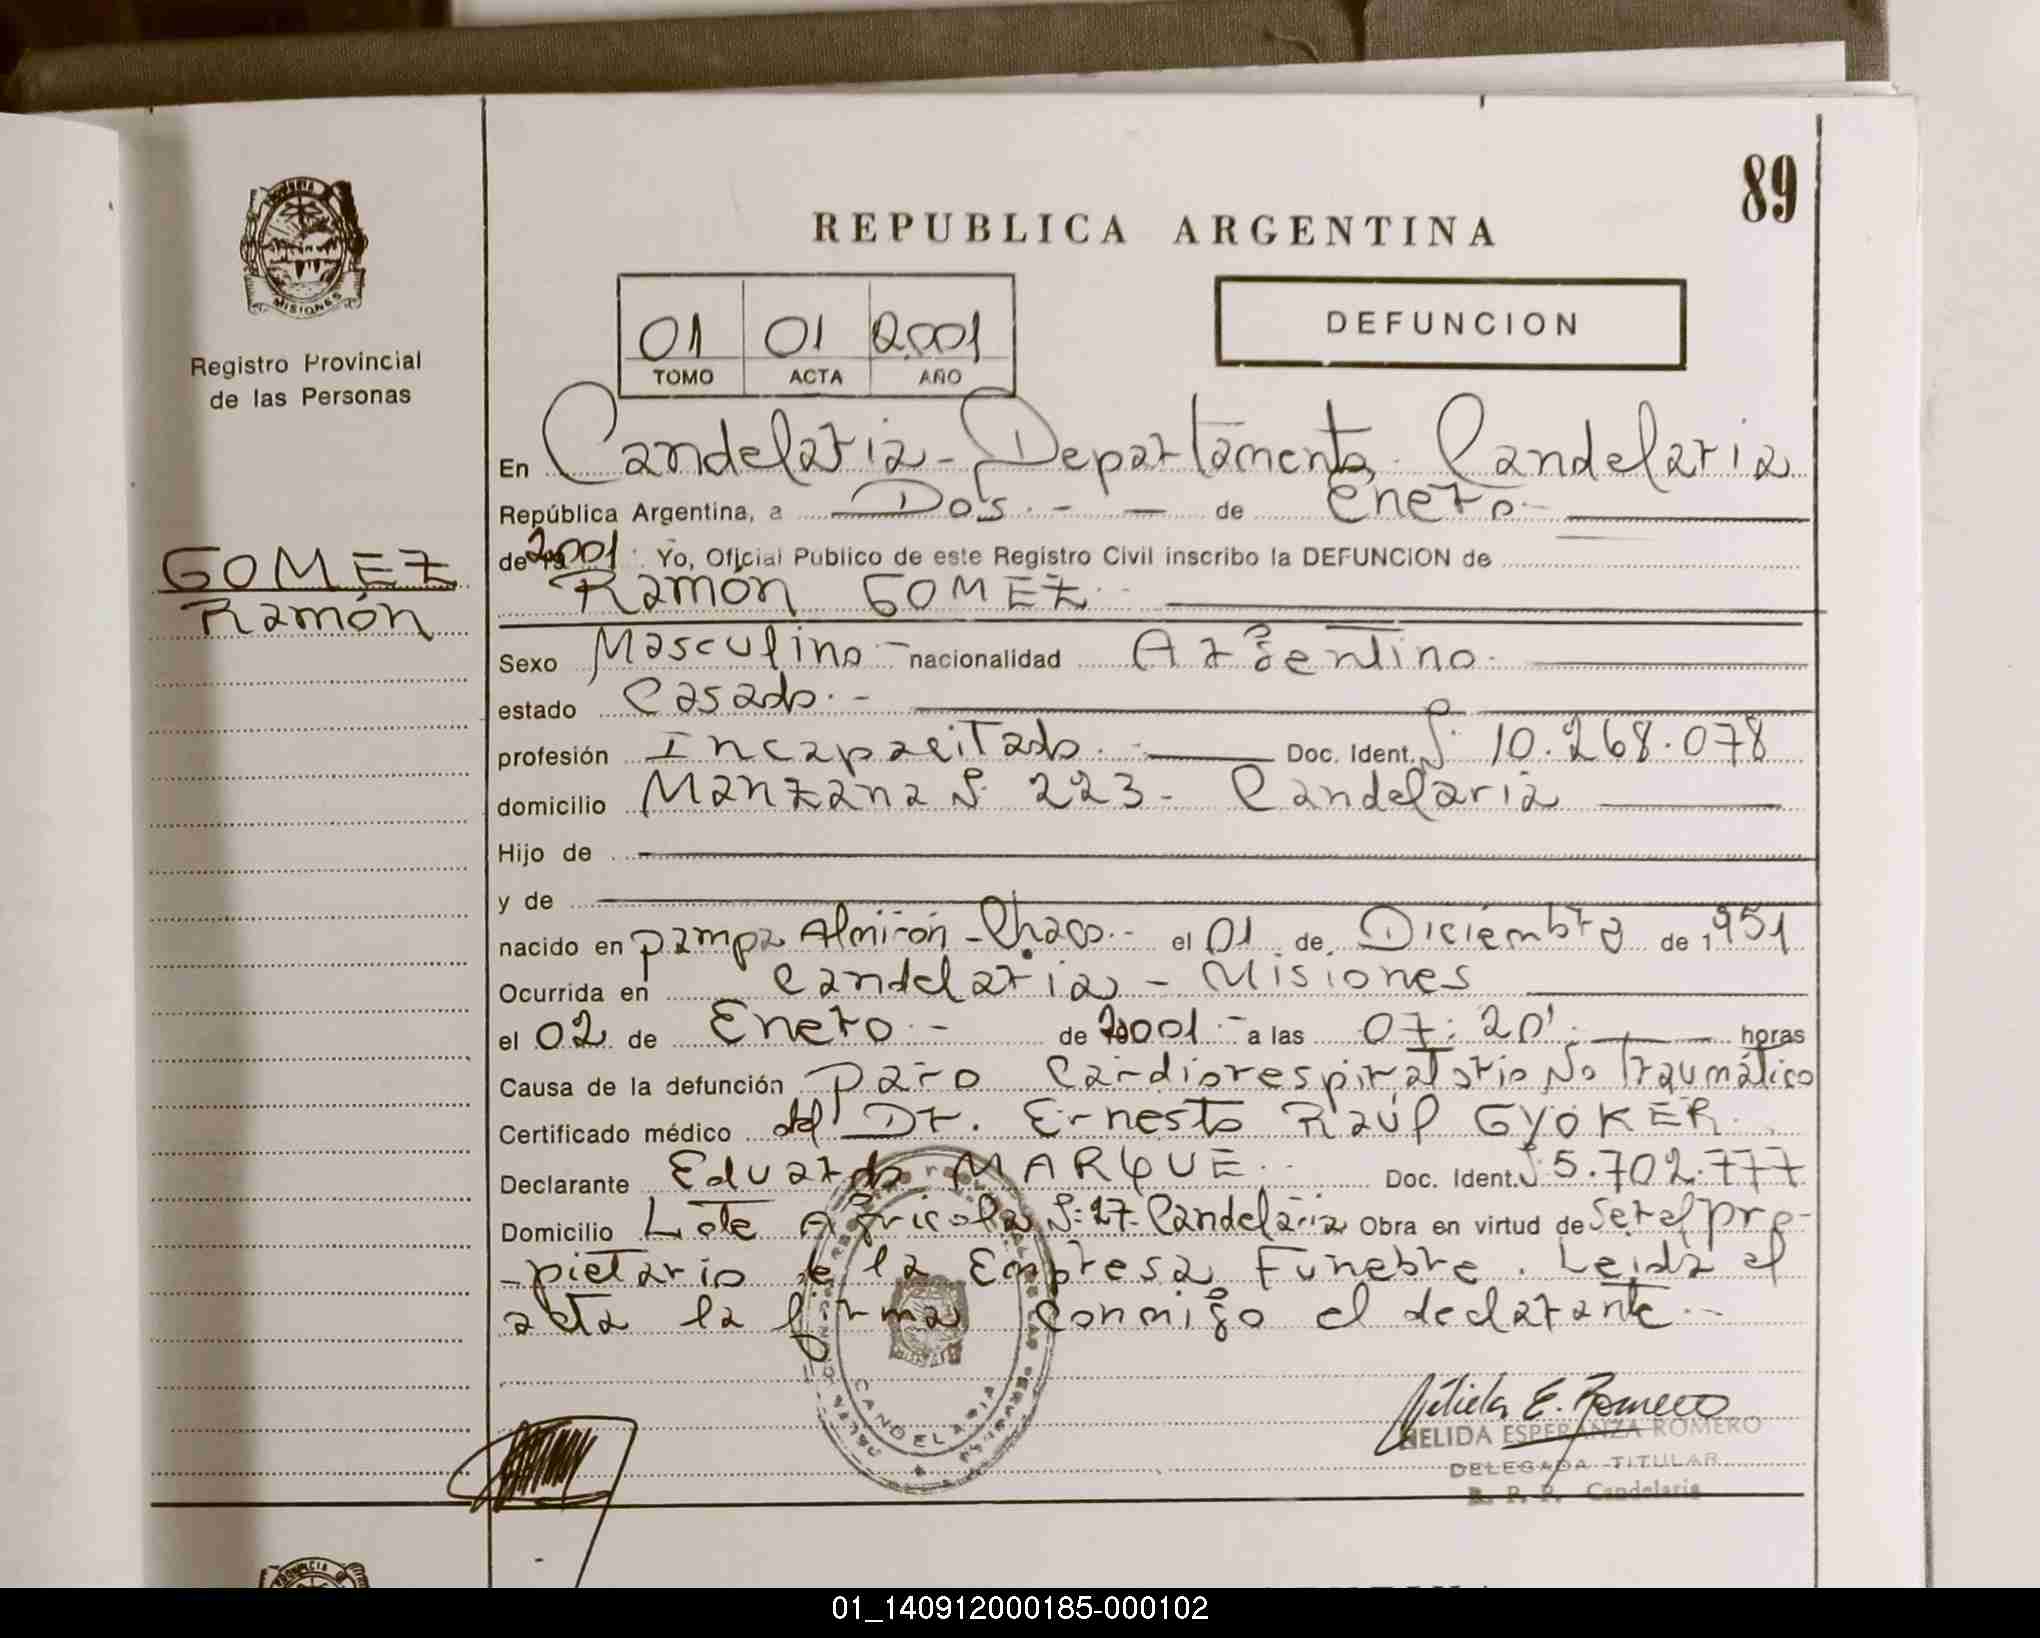 89
REPUBLICA ARGENTINA
MISIONES
Registro Provincial
de las Personas
01 01 2001
TOMO ACTA AÑO
DEFUNCION
En Candelaria - Departamento Candelaria
República Argentina, a Dos - - de Enero -
de 2001 Yo, Oficial Publico de este Registro Civil inscribo la DEFUNCION de
GOMEZ
Ramón
Ramón GOMEZ
Sexo Masculino - nacionalidad Argentino
estado Casado. -
profesión Incapacitado. Doc. Ident. 10.268.078
domicilio Manzana 223 - Candelaria
Hijo de
y de
nacido en Pampa Almirón - Chaco. - el 01 de Diciembre de 1951
Ocurrida en Candelaria - Misiones
el 02 de Enero. - de 2001. - a las 07:20'. horas
Causa de la defunción paro Cardiorespiratorio No Traumático
Certificado médico del Dr. Ernesto Raúl GYÖKER.
Declarante Eduardo MARQUE. Doc. Ident. 5.702.777
Domicilio Lote Agricola 27 - Candelaria Obra en virtud de Ser el pro-
-pietario de la Empresa Funebre. Leida el
acta la firma conmigo el declarante. -
CANDELARIA
Nélida E. Romero
NELIDA ESPERANZA ROMERO
DELEGADA TITULAR
R. P. P. Candelaria
PROVINCIA
01_140912000185-000102